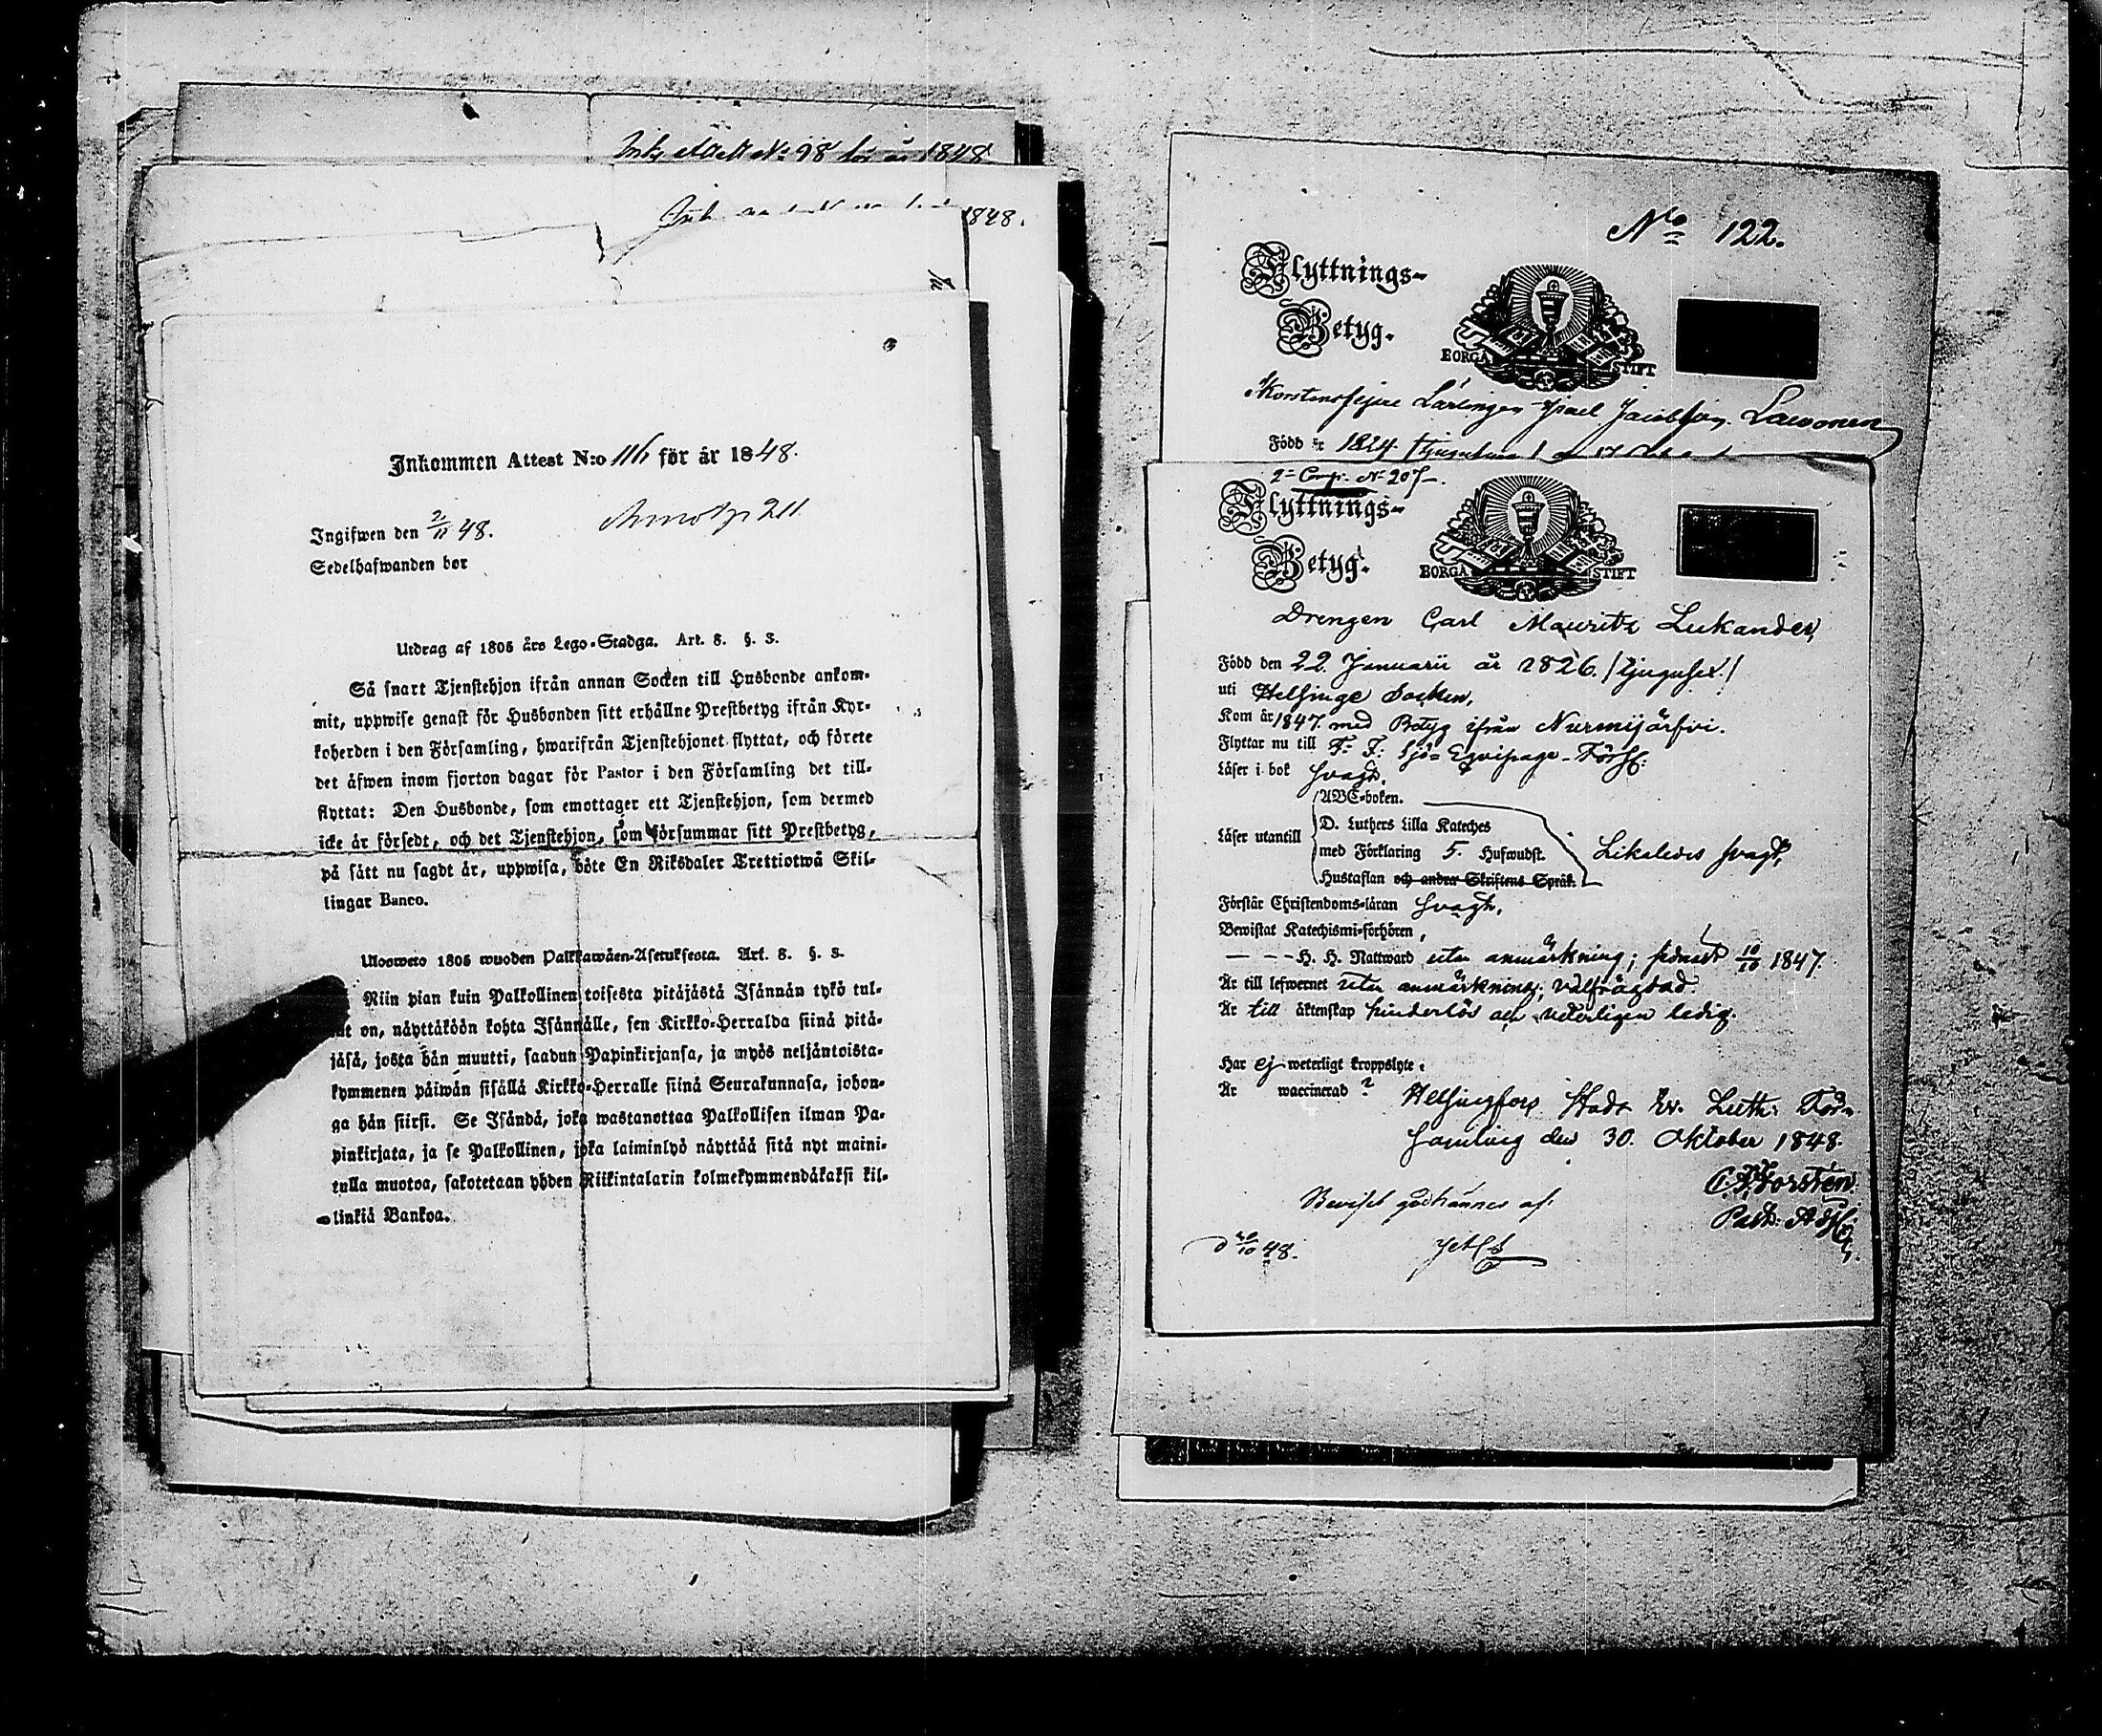 Ink. Attest No 98 för år 1848
1848.
Inkommen Attest N:o 116 för år 1848.
Ingifwen den 2/11 48.
Sedelhafwanden bor
Utdrag af 1805 års Lego-Stadga. Art. 8. §. 3.
Så snart Tjenstehjon ifrån annan Socken till Husbonde ankom-
mit, uppwise genast för Husbonden sitt erhållne Prestbetyg ifrån Kyr-
koherden i den Församling, hwarifrån Tjenstehjonet flyttat, och förete
det äfwen inom fjorton dagar för Pastor i den Församling det till-
flyttat: Den Husbonde, som emottager ett Tjenstehjon, som dermed
icke är försedt, och det Tjenstehjon, som försummar sitt Prestbetyg,
på sätt nu sagdt är, uppwisa, böte En Riksdaler Trettiotwå Skil-
lingar Banco.
Ulosweto 1805 wuoden Palkkawäen-Asetuksesta. Art. 8. §. 3.
Niin pian kuin Palkollinen toisesta pitäjästä Isännän tykö tul-
ut on, näyttäköön kohta Isännälle, sen Kirkko-Herralda siinä pitä-
jäsä, josta hän muutti, saadun Papinkirjansa, ja myös neljäntoista-
kymmenen päiwän sisällä Kirkko-Herralle siinä Seurakunnasa, johon-
ga hän siirsi. Se Isändä, joka wastanottaa Palkollisen ilman Pa-
pinkirjata, ja se Palkollinen, joka laiminlyö näyttää sitä nyt maini-
tulla muotoa, sakotetaan yhden Riikintalarin kolmekymmendäkaksi kil-
linkiä Bankoa.
No 122.
Flyttnings-
Betyg.
BORGÅ STIFT
Korstensfejare Lärlingen Israel Jacobsson Lawonen
Född år 1824
2= Comp. No 207
Flyttnings-
Betyg.
BORGÅ STIFT
Drengen Carl Mauritz Lukander,
Född den 22 Januarii år 1826. /tjugusex./
uti Helsinge Socken,
Kom år 1847. med Betyg ifrån Nurmijärfvi.
Flyttar nu till F: F: Sjö-Eqvipage-Förs:
Läser i bok svagt,
ABC-boken.
Läser utantill D. Luthers Lilla Kateches
med Förklaring 5. Hufwudst. Likaledes svagt,
Hustaflan och andra Skriftens Språk.
Förstår Christendoms-läran svagt,
Bewistat Katechismi-förhören,
— - - H. H. Nattward utan anmärkning; sednast 10/10 1847.
Är till lefwernet utan anmärkning; välfrägdad
Är till äktenskap hinderlös och veterligen ledig.
Har ej weterligt kroppslyte.
Är waccinerad ?
Helsingfors Stads Ev. Luth: För-
samling den 30 Oktober 1848.
Beviset godkännes af: